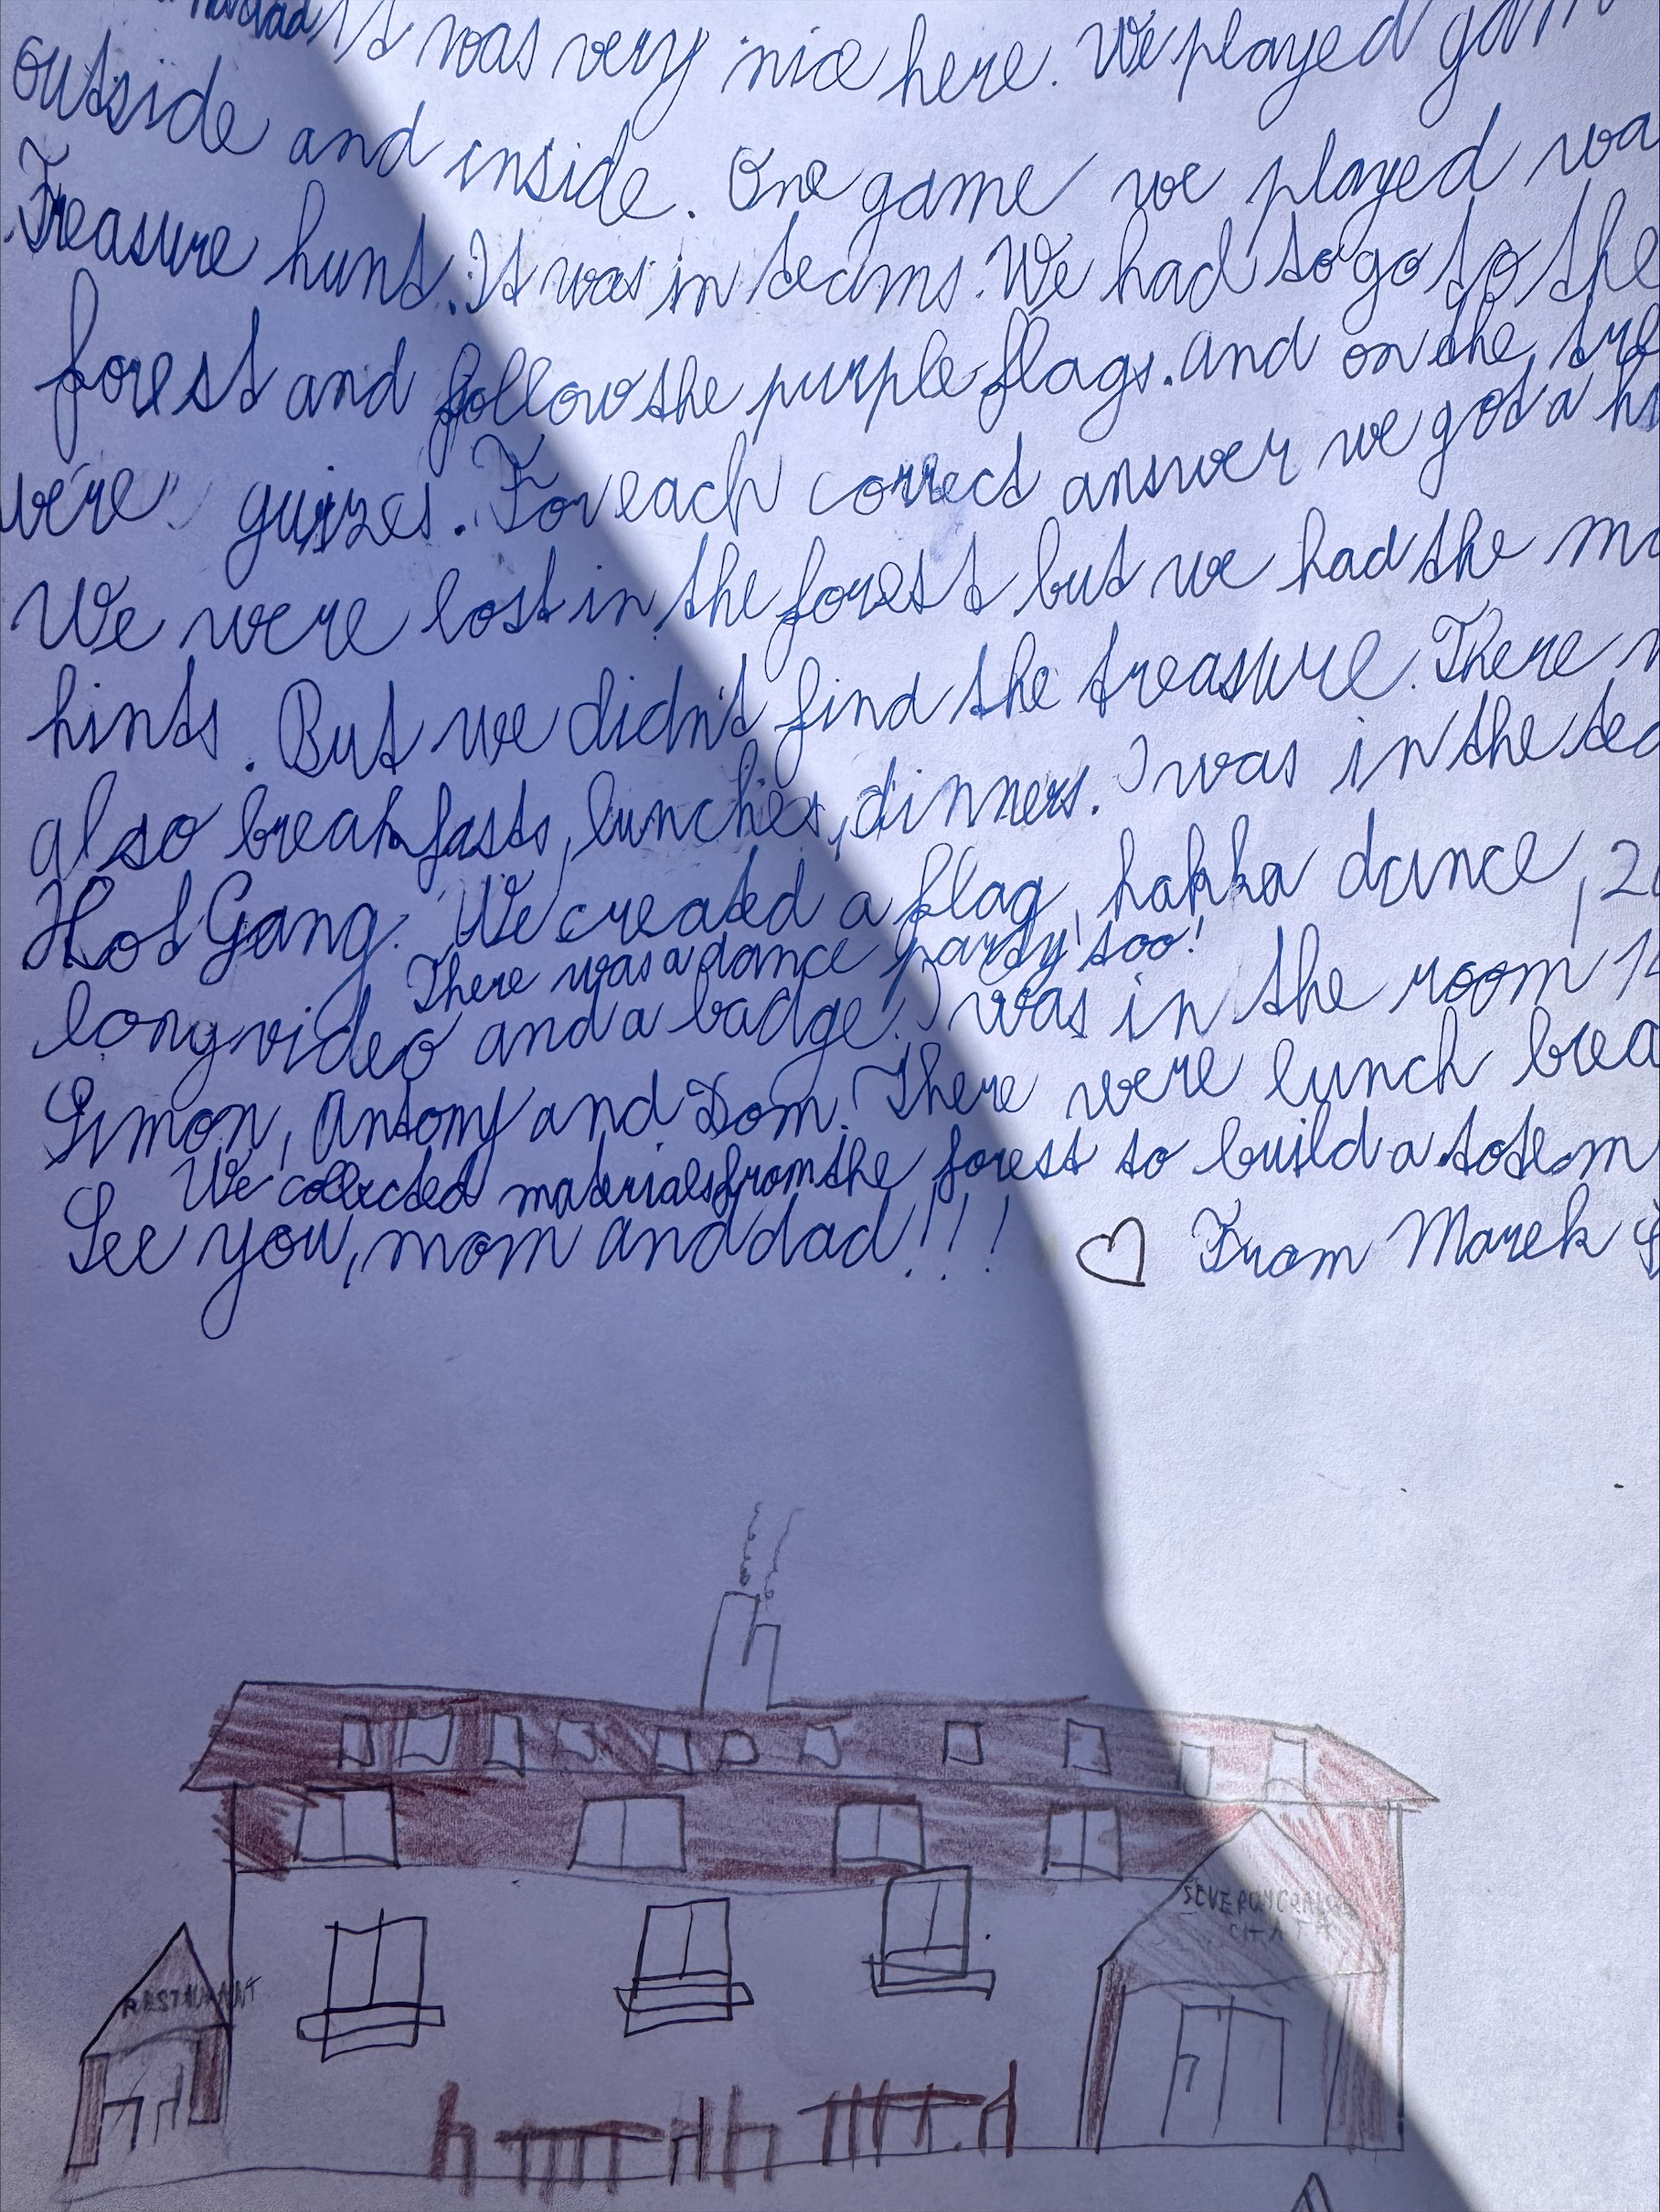 It was very nice here. We played
outside and inside. One game we played
Treasure hunt. It was in teams. We had to go to the
forest and follow the purple flags. and on the
were quizzes. For each correct answer we got a
We were lost in the forest but we had the
hints. But we didn't find the treasure. There
also breakfasts, lunches, dinners. I was in the
Hot Gang. We created a flag, hakka dance,
There was a dance party too!
long video and a badge. I was in the room
Simon, Antony and Dom. There were lunch
We collected materials from the forest to build a totem
See you, mom and dad!!! From Marek
RESTAURANT